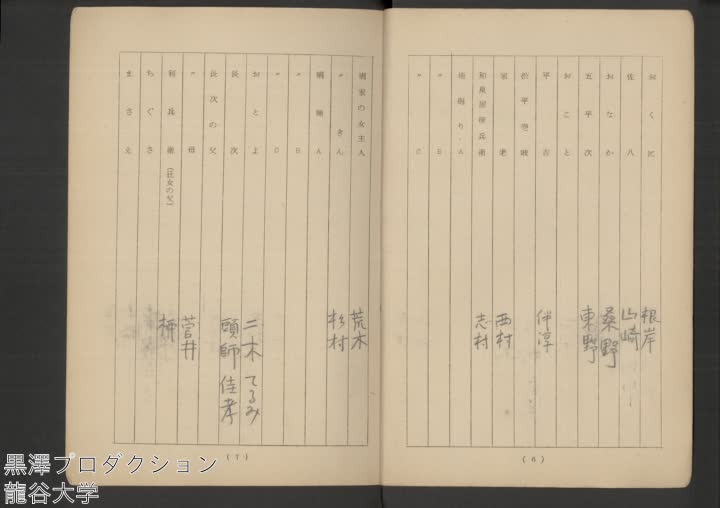 おくに 根岸
佐八 山崎
おなか 桑野
五平次 東野
おこと
平吉 伴淳
松平壱岐
家老 西村
和泉屋徳兵衛 志村
地廻り・A
〃 B
〃 C
(6)
娼家の女主人 荒木
〃 きん 杉村
娼婦A
〃 B
〃 C
おとよ 二木てるみ
長次 頭師佳孝
長次の父
〃 母 菅井
利兵衛(狂女の父) 柄
ちぐさ
まさえ
(7)
黒澤プロダクション
龍谷大学